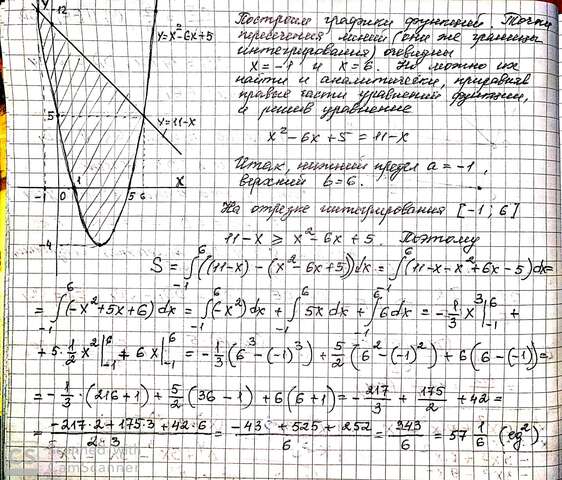 y
12
y=x²-6x+5
5
y=11-x
-1 0 1 5 6 x
-4
Построим графики функций. Точки
пересечения линий (они же границы
интегрирования) очевидны
x=-1 и x=6. Но можно их
найти и аналитически, приравняв
правые части уравнений функций,
и решив уравнение
x²-6x+5=11-x
Итак, нижний предел a=-1,
верхний b=6.
На отрезке интегрирования [-1; 6]
11-x ⩾ x²-6x+5. Поэтому
S = ∫₋₁⁶((11-x)-(x²-6x+5))dx = ∫₋₁⁶(11-x-x²+6x-5)dx=
= ∫₋₁⁶(-x²+5x+6)dx = ∫₋₁⁶(-x²)dx + ∫₋₁⁶5x dx + ∫₋₁⁶6dx = -1/3 x³|₋₁⁶ +
+ 5·1/2 x²|₋₁⁶ + 6x|₋₁⁶ = -1/3(6³-(-1)³) + 5/2(6²-(-1)²) + 6(6-(-1))=
= -1/3·(216+1) + 5/2(36-1) + 6(6+1) = -217/3 + 175/2 + 42 =
= (-217·2+175·3+42·6)/(2·3) = (-43 + 525 + 252)/6 = 343/6 = 57 1/6 (ед²)
CS Scanned with
CamScanner